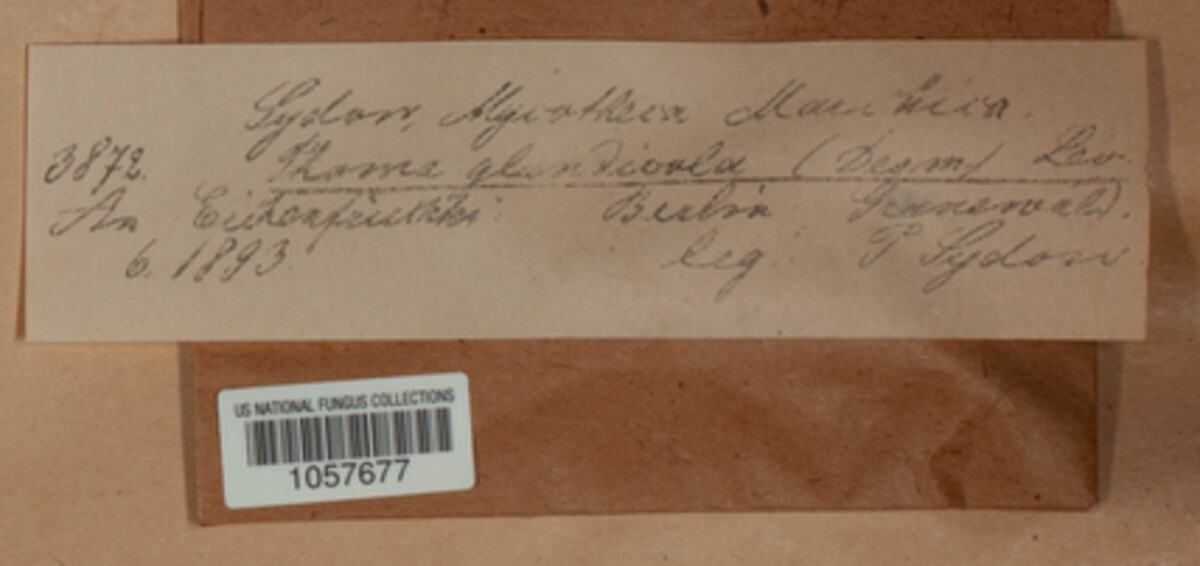 Sydow, Mycotheca Marchica.
3872. Phoma glandicola (Desm) Lev.
An Eichenfrüchten Berlin Grunewald.
6. 1893. leg. P Sydow
US NATIONAL FUNGUS COLLECTIONS
1057677